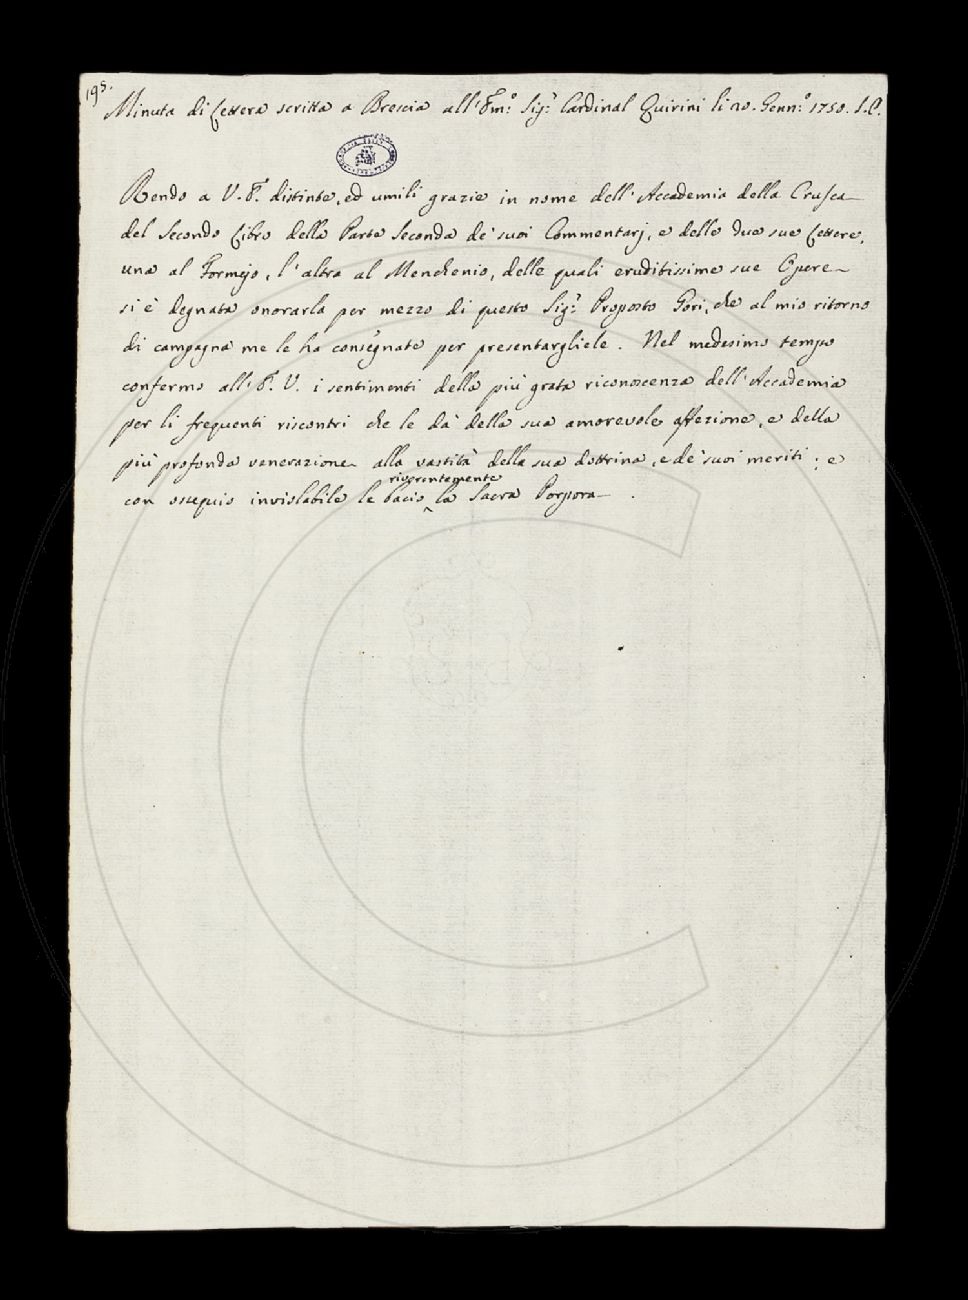 195.
Minuta di Lettera scritta a Brescia all'Em.º Sig.r Cardinal Quirini li 20. Genn.º 1750. S.C.
Rendo a V. E. distinte, ed umili grazie in nome dell'Accademia della Crusca
del Secondo Libro della Parte Seconda de' suoi Commentarj, e delle due sue Lettere,
una al Formejo, l'altra al Menchenio, delle quali eruditissime sue Opere
si è degnata onorarla per mezzo di questo Sig.r Proposto Gori, che al mio ritorno
di campagna me le ha consegnate per presentargliele. Nel medesimo tempo
confermo all'E. V. i sentimenti della più grata riconoscenza dell'Accademia
per li frequenti riscontri che le dà della sua amorevole affezione, e della
più profonda venerazione alla vastità della sua dottrina, e de' suoi meriti; e
riverentemente
con ossequio inviolabile le bacio ‸ la Sacra Porpora.